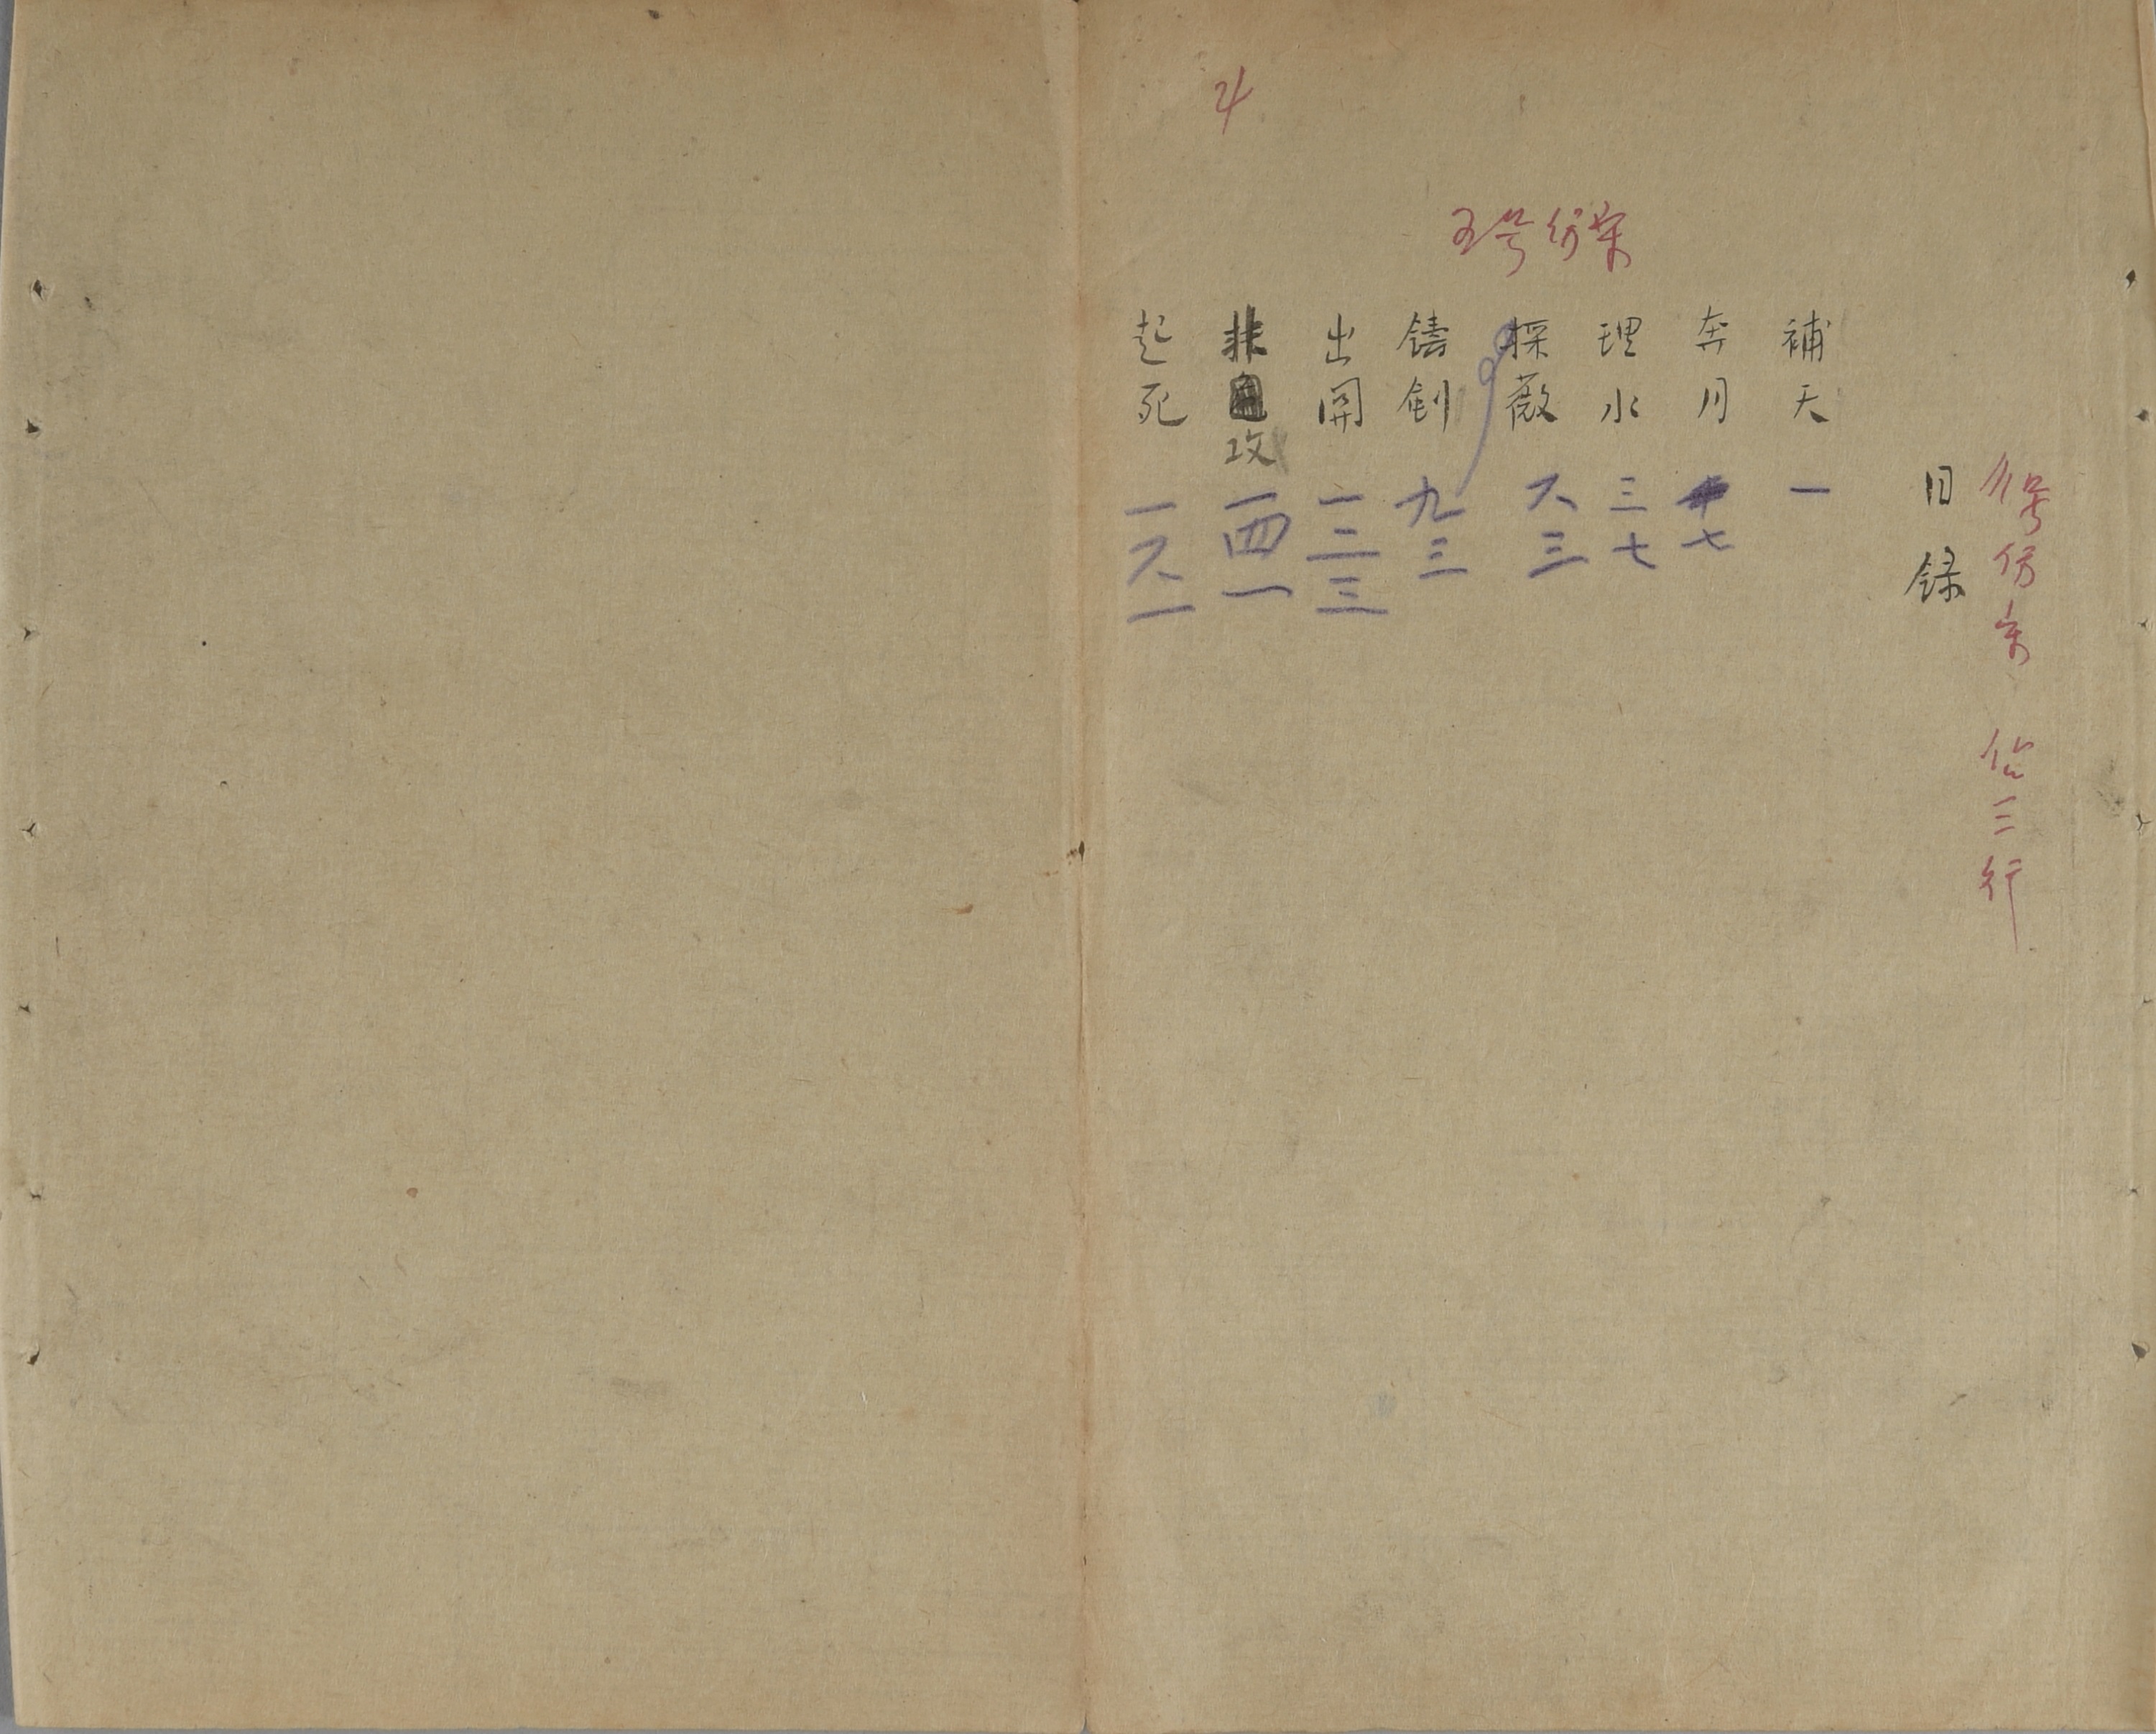 4
五号仿宋
号仿宋 佔三行
目録
補天 一
奔月 七
理水 三七
採薇 六三
鑄劍 九三
出關 一二三
非攻 一四一
起死 一六一